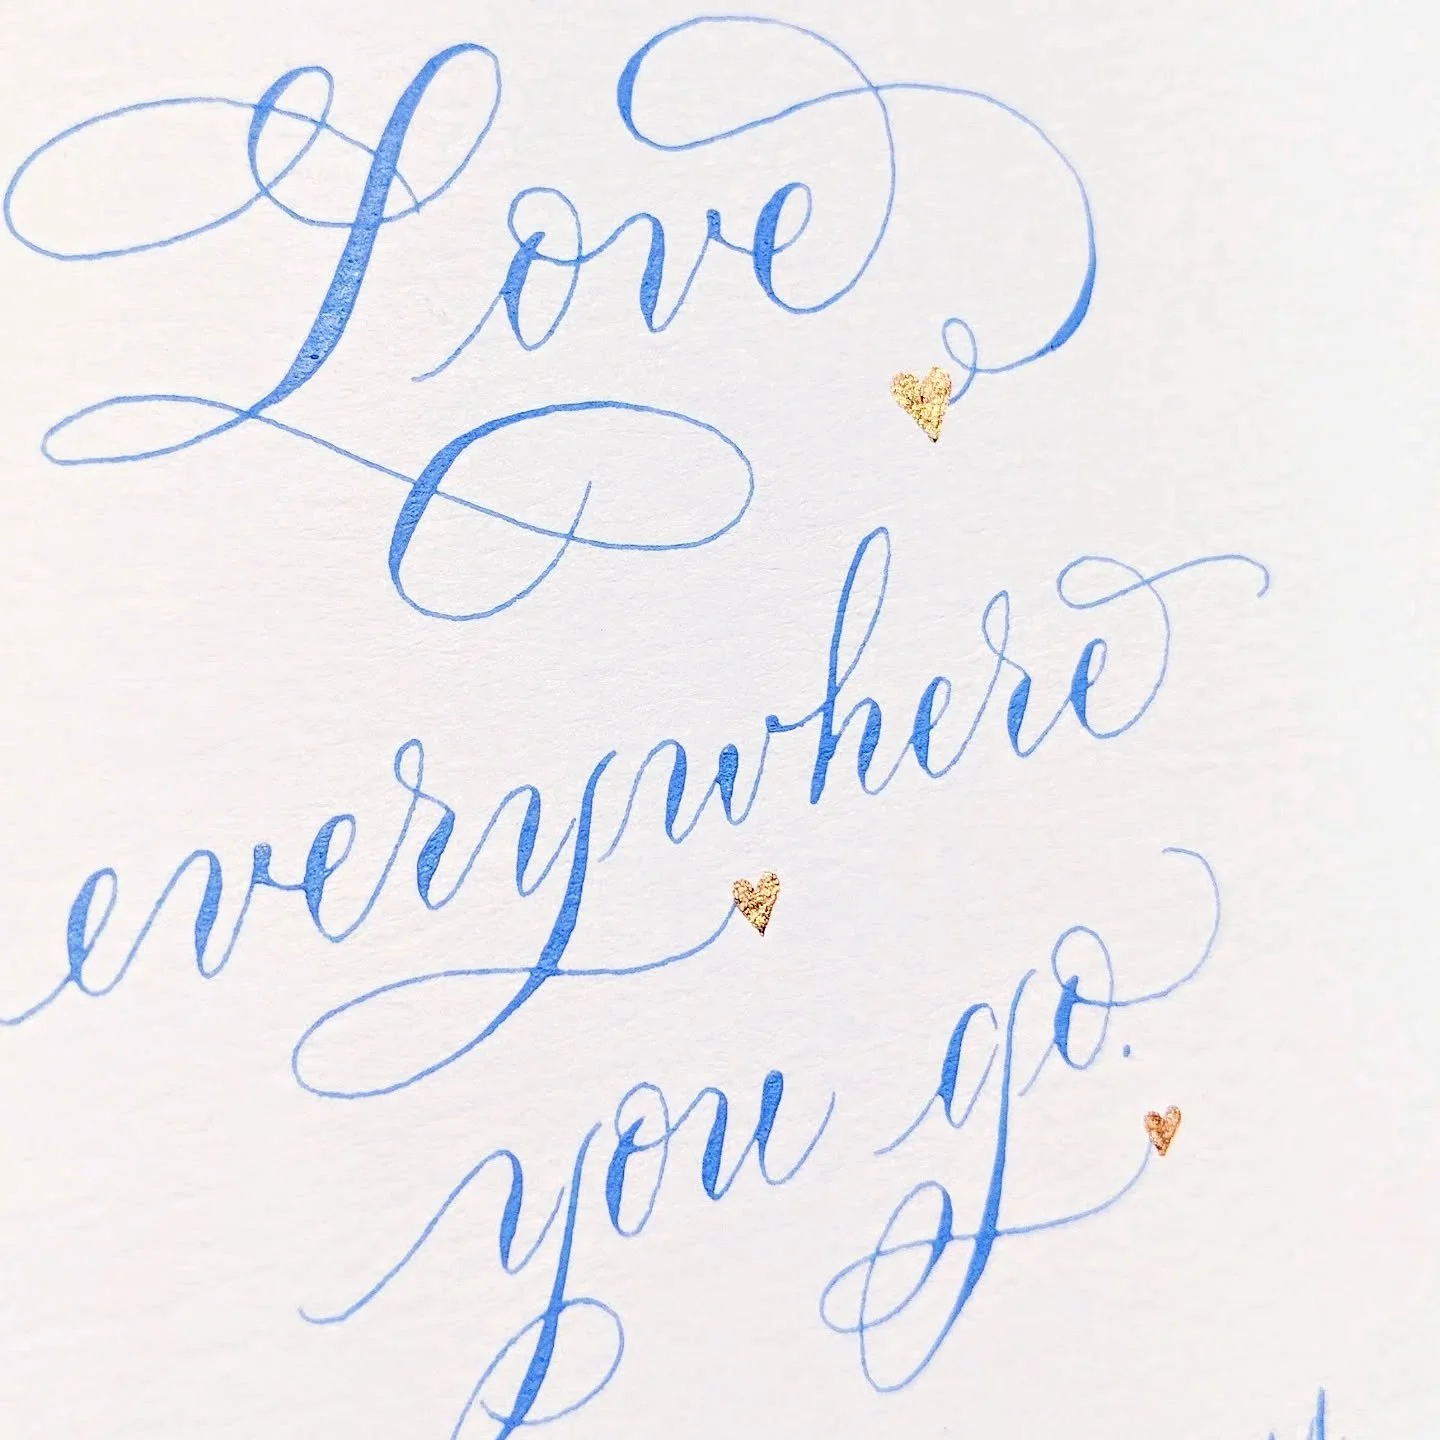 Love
everywhere
you go.